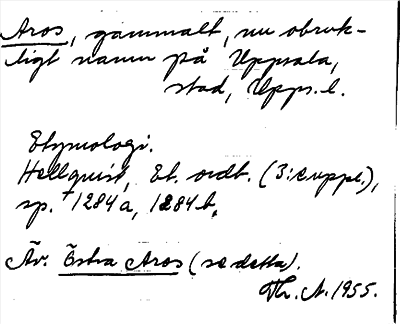 Aros, gammalt, nu obruk-
ligt namn på Uppsala,
stad, Upps. l.
Etymologi.
Hellquist, Et. ordb. (3:e uppl.),
sp. 1284a, 1284b.
Äv. Östra Aros (se detta).
Th. A. 1955.